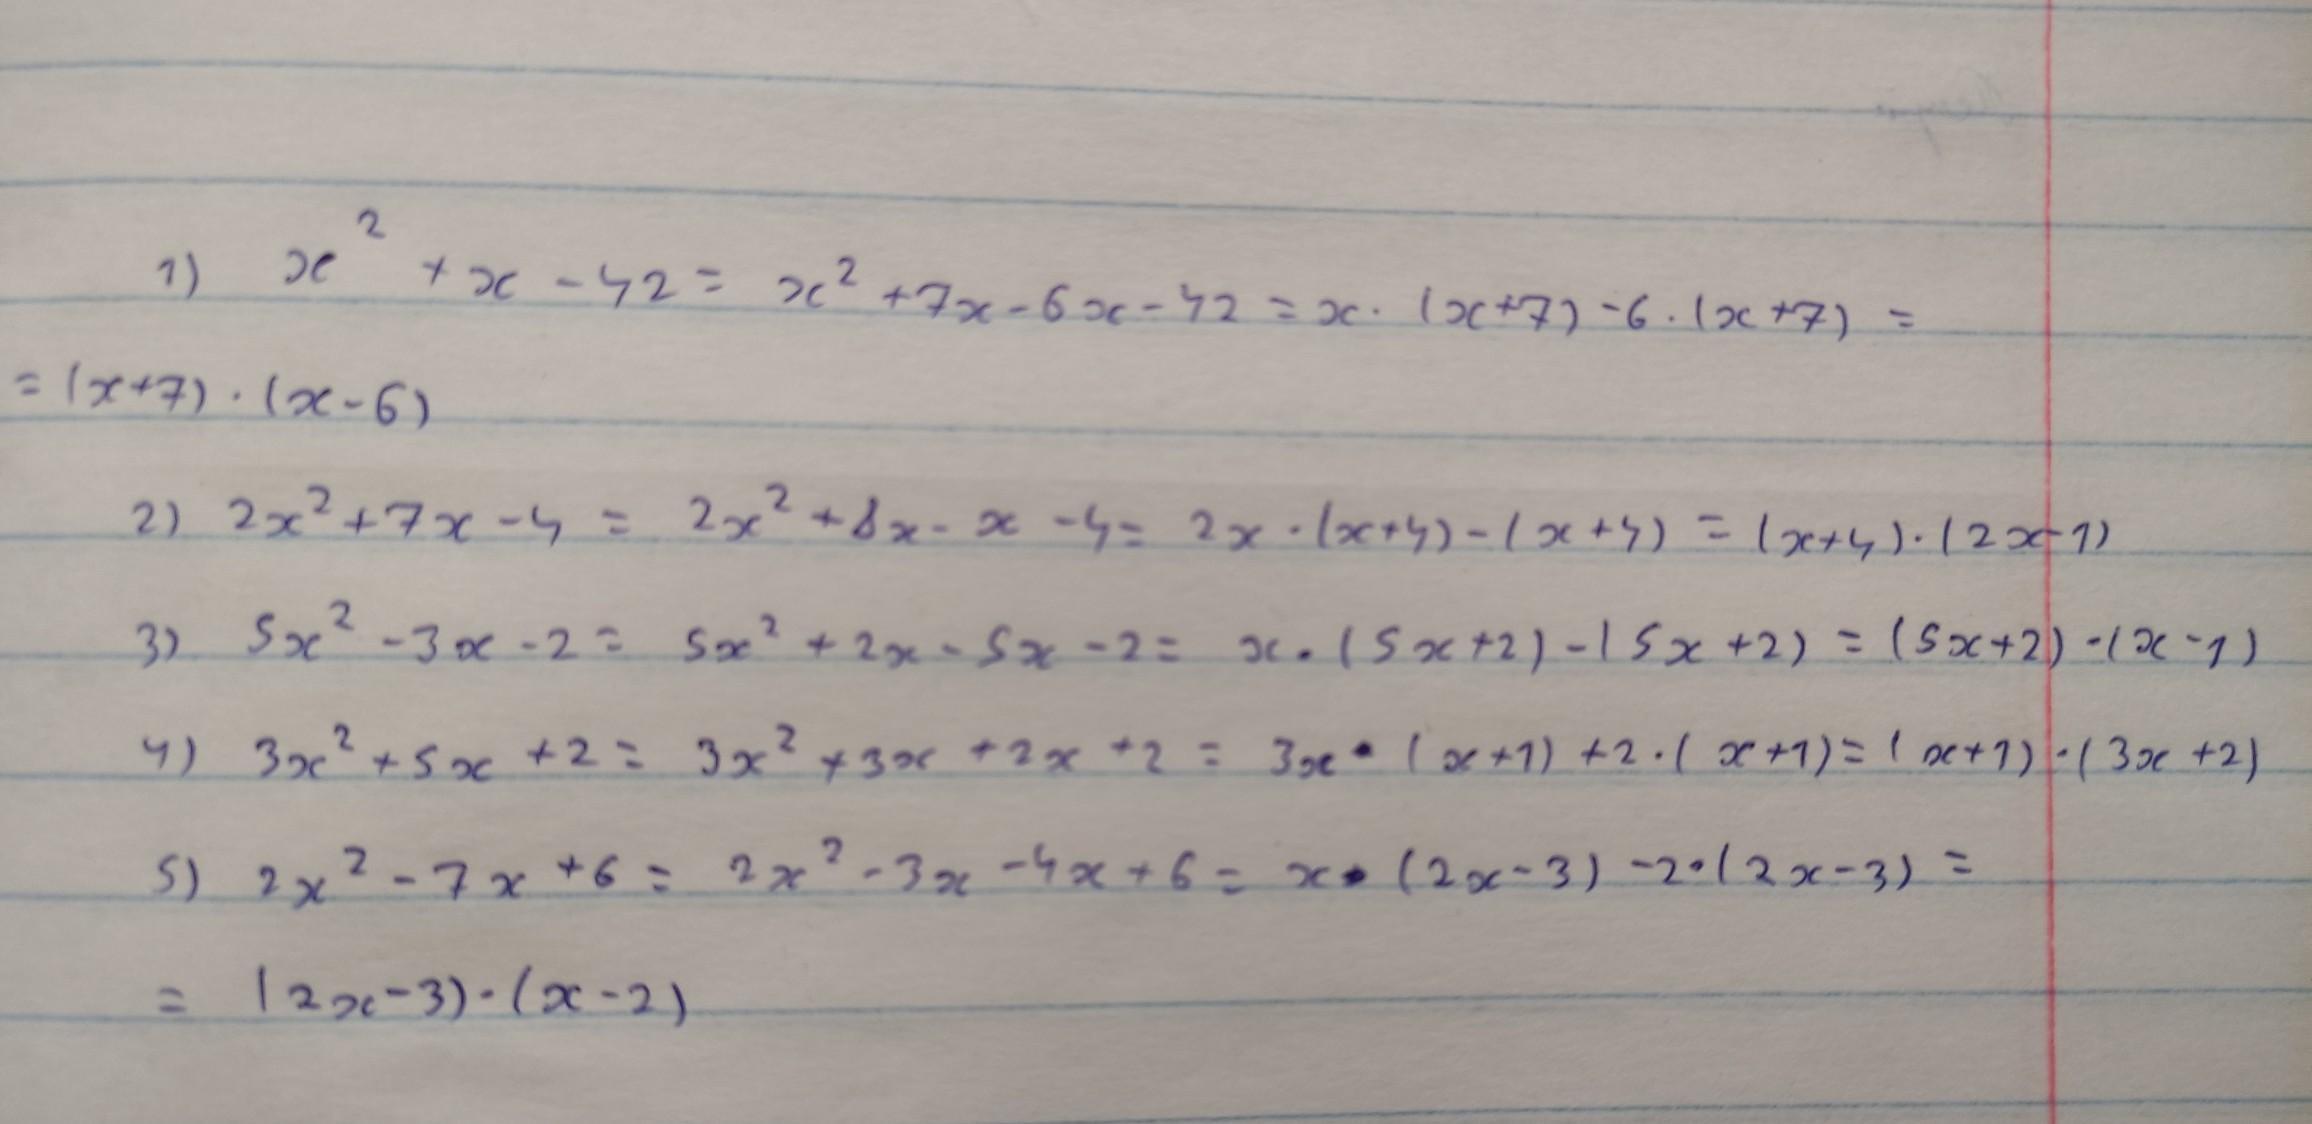 1) x² + x - 42 = x² + 7x - 6x - 42 = x · (x+7) - 6 · (x+7) =
= (x+7) · (x-6)
2) 2x² + 7x - 4 = 2x² + 8x - x - 4 = 2x · (x+4) - (x+4) = (x+4) · (2x-1)
3) 5x² - 3x - 2 = 5x² + 2x - 5x - 2 = x · (5x+2) - (5x+2) = (5x+2) · (x-1)
4) 3x² + 5x + 2 = 3x² + 3x + 2x + 2 = 3x · (x+1) + 2 · (x+1) = (x+1) · (3x+2)
5) 2x² - 7x + 6 = 2x² - 3x - 4x + 6 = x · (2x-3) - 2 · (2x-3) =
= (2x-3) · (x-2)